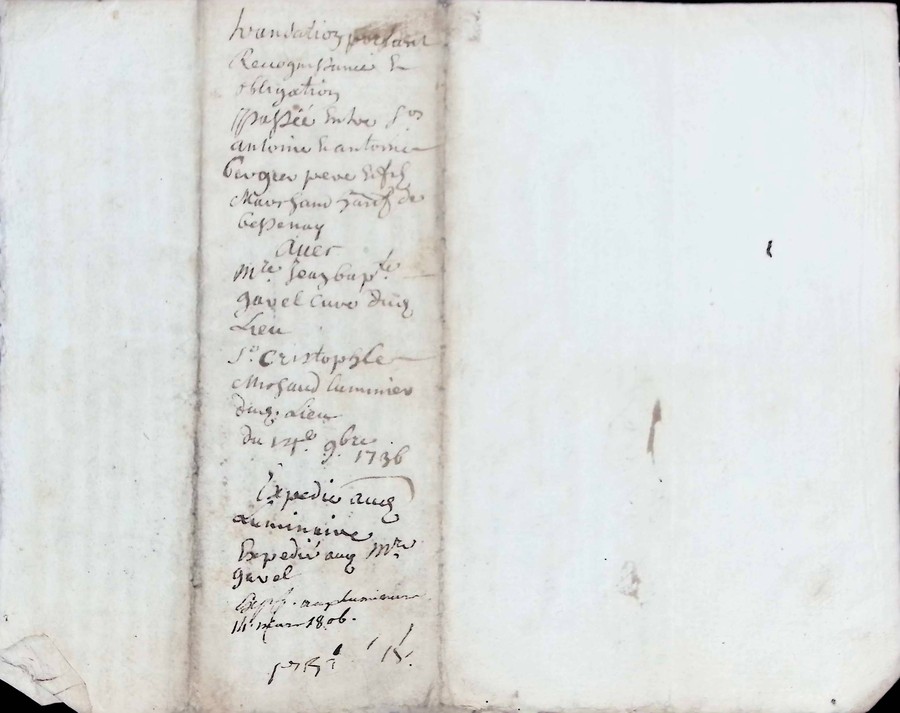 fvandation portant
Recognissance Et
obligation
passéé Entre Srs
antoine Et antoine
Bergier pere Et fils
Marchand de
Bessenay
Avec
Mre Jean bapte
gavel Curé dudq
Lieu
Sr Cristophle
luminier
dudq. Lieu
du 14e 9bre
1736
Expedié audq
Luminaire
Expedié audq Mre
gavel
Exp. aux luminiers
14 mars 1806.